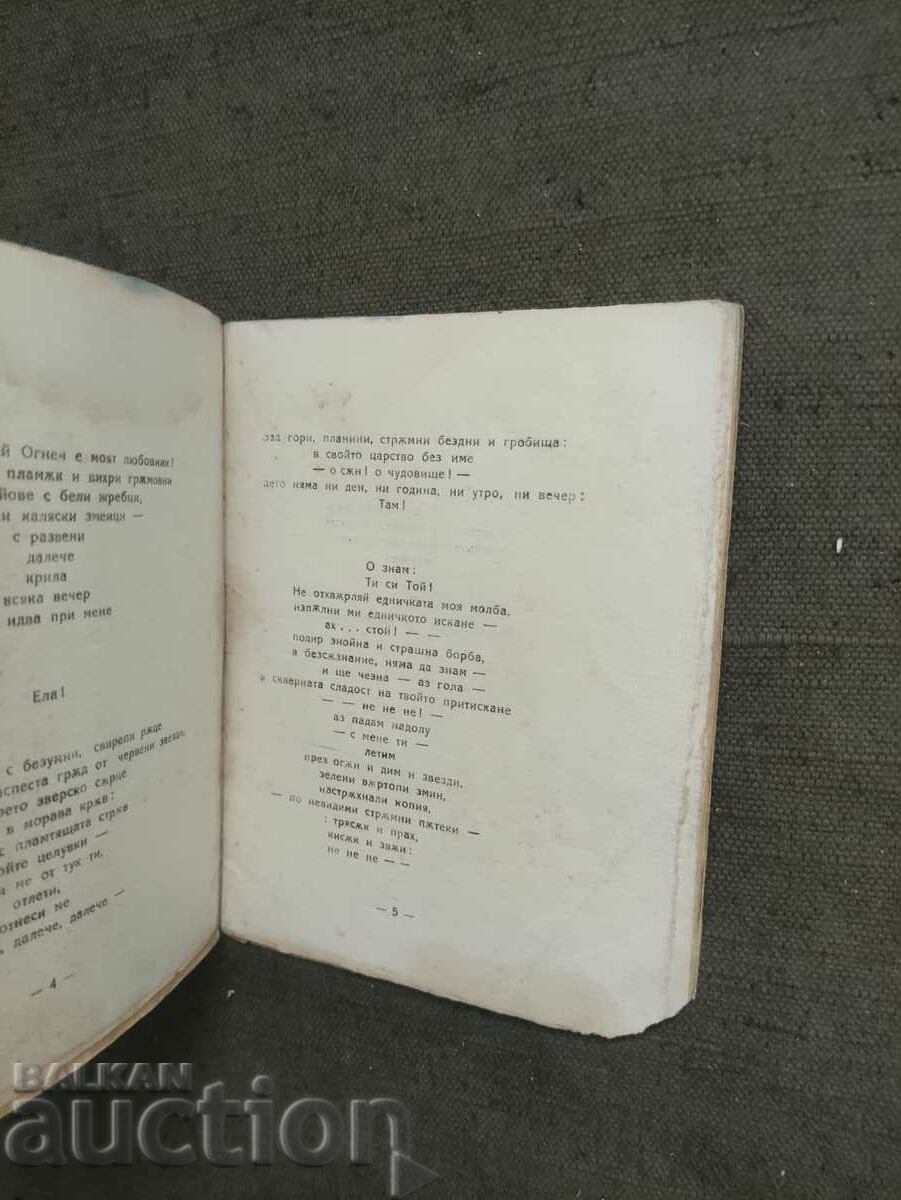 ей Огнен е моят любовник!
пламѫк и вихри грѫмовни
йове с бели жребци,
и каляски змейци —
с развени
далече
крила
всяка вечер
идва при мене
Ела!
с безумни, свирепи рѫце
грѫд от червени звезди,
зверско сѫрце
в морава крѫв:
с пламтящата стрѫв
целувки —
ме от тук ти,
отлети,
отнеси ме
далече, далече —
— 4 —
зад гори, планини, стрѫмни бездни и гробища:
в свойто царство без име
— о сѫн! о чудовище! —
дето няма ни ден, ни година, ни утро, ни вечер:
Там!
О знам:
Ти си Той!
Не отхвѫрляй едничката моя молба,
изпѫлни ми едничкото искане —
ах... стой! — —
подир знойна и страшна борба,
в безсѫзнание, няма да знам —
и ще чезна — аз гола —
в скверната сладост на твойто притискане
— — не не не! —
аз падам надолу
— с мене ти —
летим
през огѫн и дим и звезди,
зелени вѫртопи змии,
настрѫхнали копия,
— по невидими стрѫмни пѫтеки —
: трясѫк и прах,
кисѫк и звѫн:
не не не — —
— 5 —
BALKAN
auction